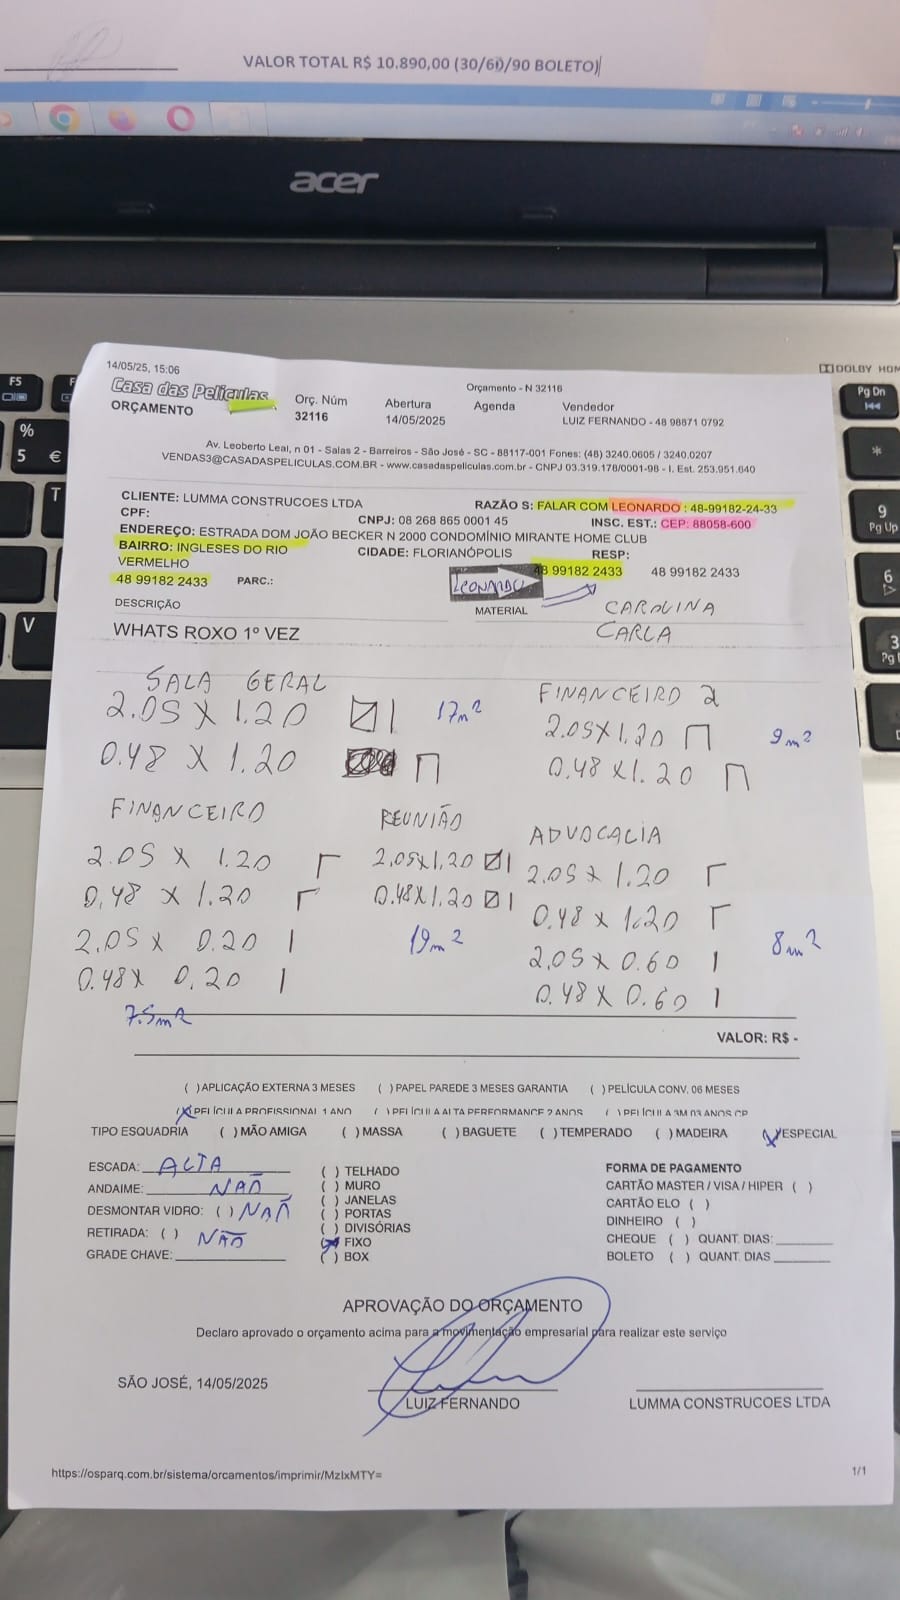 VALOR TOTAL R$ 10.890,00 (30/60/90 BOLETO)
acer
DOLBY HOM
F5
F
%
5 €
T
V
Pg Dn
*
9
Pg Up
6
3
Pg
14/05/25, 15:06
Orçamento - N 32116
Casa das Películas
ORÇAMENTO
Orç. Núm
32116
Abertura
14/05/2025
Agenda
Vendedor
LUIZ FERNANDO - 48 98871 0792
Av. Leoberto Leal, n 01 - Salas 2 - Barreiros - São José - SC - 88117-001 Fones: (48) 3240.0605 / 3240.0207
VENDAS3@CASADASPELICULAS.COM.BR - www.casadaspeliculas.com.br - CNPJ 03.319.178/0001-98 - I. Est. 253.951.640
CLIENTE: LUMMA CONSTRUCOES LTDA
RAZÃO S: FALAR COM LEONARDO : 48-99182-24-33
CPF:
CNPJ: 08 268 865 0001 45
INSC. EST.: CEP: 88058-600
ENDEREÇO: ESTRADA DOM JOÃO BECKER N 2000 CONDOMÍNIO MIRANTE HOME CLUB
BAIRRO: INGLESES DO RIO VERMELHO
CIDADE: FLORIANÓPOLIS
RESP:
48 99182 2433
PARC.:
LEONARDO
48 99182 2433
48 99182 2433
DESCRIÇÃO
MATERIAL
CAROLINA
WHATS ROXO 1º VEZ
CARLA
SALA GERAL
2.05 X 1.20
17m²
0.48 X 1.20
FINANCEIRO 2
2.05X1.20
9m²
0.48 X1.20
FINANCEIRO
2.05 X 1.20
0,48 X 1.20
2.05 X 0.20 |
0.48X 0.20 |
7.5m²
REUNIÃO
2,05x1,20
0.48X1.20
19m²
ADVOCACIA
2.05 X 1.20
0.48 X 1.20
2,05 X 0.60 |
8m²
0.48 X 0.60 |
VALOR: R$ -
( ) APLICAÇÃO EXTERNA 3 MESES ( ) PAPEL PAREDE 3 MESES GARANTIA ( ) PELÍCULA CONV. 06 MESES
(X) PELÍCULA PROFISSIONAL 1 ANO ( ) PELÍCULA ALTA PERFORMANCE 2 ANOS ( ) PELÍCULA 3M 03 ANOS CP
TIPO ESQUADRIA ( ) MÃO AMIGA ( ) MASSA ( ) BAGUETE ( ) TEMPERADO ( ) MADEIRA (X) ESPECIAL
ESCADA: ALTA
ANDAIME: NAÕ
DESMONTAR VIDRO: ( ) NAÕ
RETIRADA: ( ) NÃO
GRADE CHAVE:
( ) TELHADO
( ) MURO
( ) JANELAS
( ) PORTAS
( ) DIVISÓRIAS
(X) FIXO
( ) BOX
FORMA DE PAGAMENTO
CARTÃO MASTER / VISA / HIPER ( )
CARTÃO ELO ( )
DINHEIRO ( )
CHEQUE ( ) QUANT. DIAS:
BOLETO ( ) QUANT. DIAS
APROVAÇÃO DO ORÇAMENTO
Declaro aprovado o orçamento acima para a movimentação empresarial para realizar este serviço
SÃO JOSÉ, 14/05/2025
LUIZ FERNANDO
LUMMA CONSTRUCOES LTDA
https://osparq.com.br/sistema/orcamentos/imprimir/MzIxMTY=
1/1